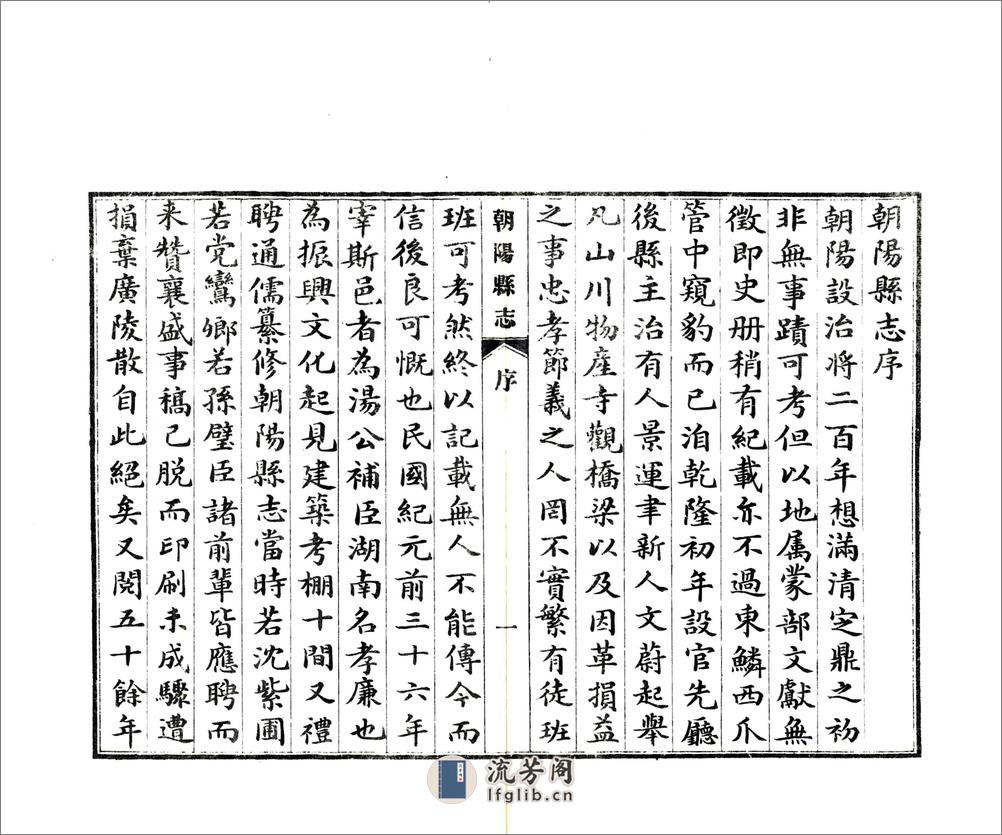 朝陽縣志序
朝陽設治將二百年想滿清定鼎之初
非無事蹟可考但以地属蒙部文獻無
徵即史册稍有紀載亦不過東鱗西爪
管中窺豹而已洎乾隆初年設官先廳
後縣主治有人景運聿新人文蔚起舉
凡山川物產寺觀橋梁以及因革損益
之事忠孝節義之人罔不實繁有徒班
朝陽縣志
序
一
班可考然終以記載無人不能傳今而
信後良可慨也民國紀元前三十六年
宰斯邑者為湯公補臣湖南名孝廉也
為振興文化起見建築考棚十間又禮
聘通儒纂修朝陽縣志當時若沈紫圃
若党鸞卿若孫璧臣諸前輩皆應聘而
来贊襄盛事稿已脱而印刷未成驟遭
損棄廣陵散自此絕矣又閱五十餘年
流芳阁
lfglib.cn